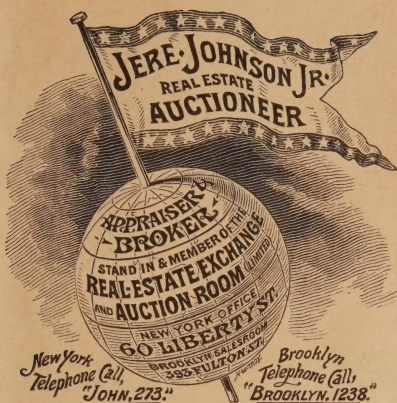 JERE·JOHNSON JR.
REAL ESTATE
AUCTIONEER
APPRAISER &
BROKER.
STAND IN & MEMBER OF THE
REAL·ESTATE EXCHANGE
AND AUCTION·ROOM (LIMITED)
NEW YORK OFFICE
60 LIBERTY ST.
BROOKLYN SALESROOM
393 FULTON ST.
New York
Telephone Call,
"JOHN, 273."
Brooklyn
Telephone Call,
"BROOKLYN, 1238."